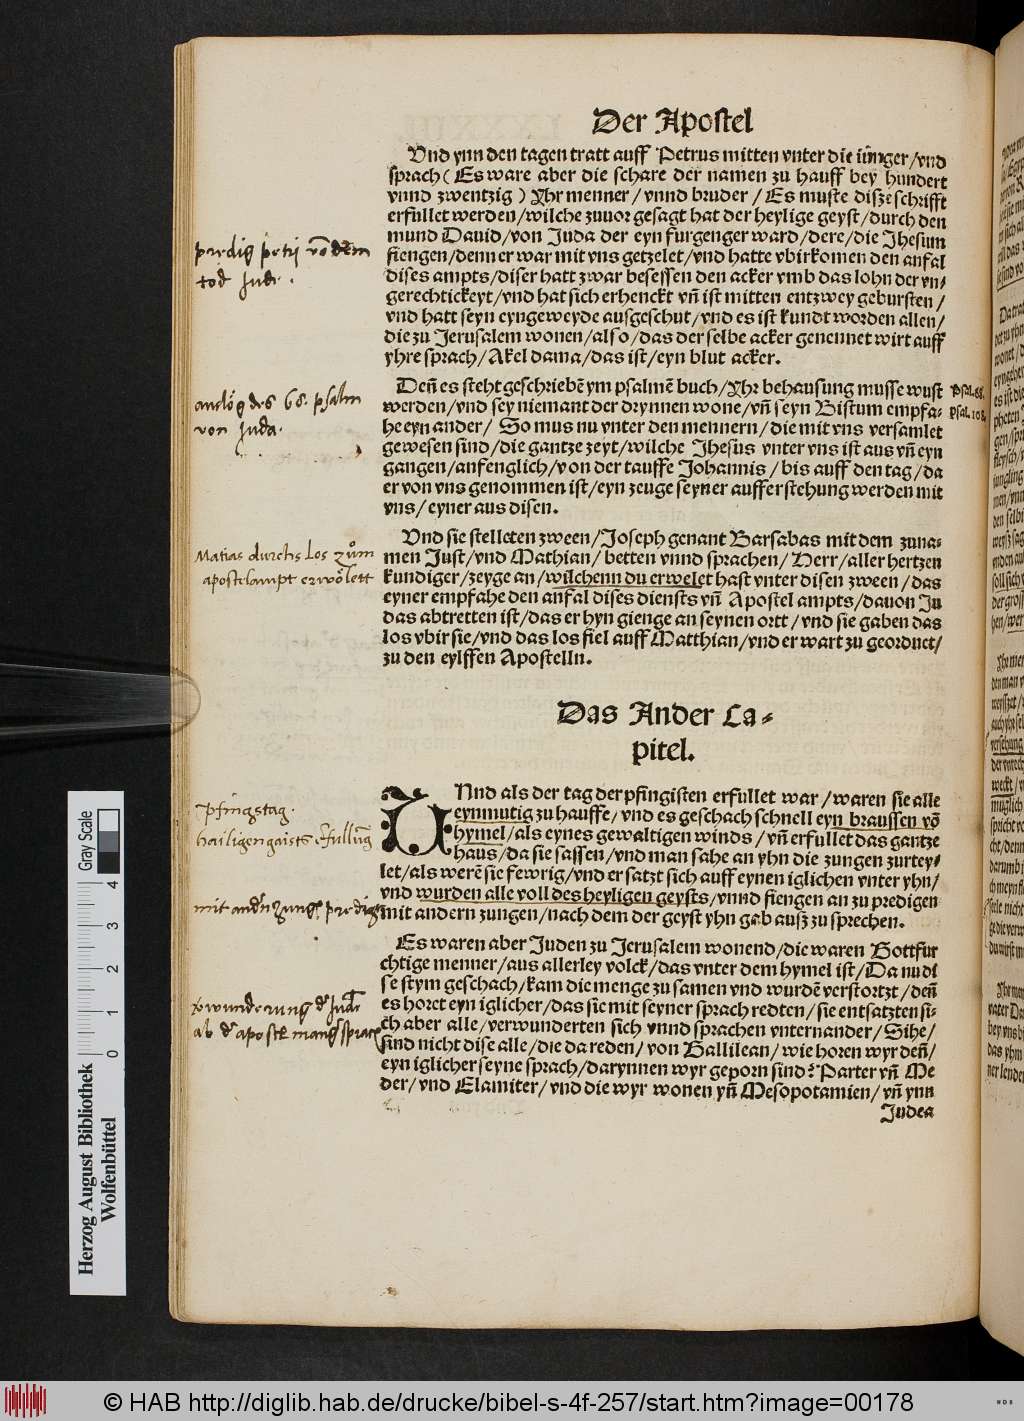 Der Apostel
Vnd ynn den tagen tratt auff Petrus mitten vnter die iünger/vnd
sprach (Es ware aber die schare der namen zu hauff bey hundert
vnnd zwentzig) Yhr menner/vnnd bruder/Es muste disze schrifft
erfullet werden/wilche zuuor gesagt hat der heylige geyst/durch den
mund Dauid/von Juda der eyn furgenger ward/dere/die Jhesum
fiengen/denn er war mit vns getzelet/vnd hatte vbirkomen den anfal
dises ampts/diser hatt zwar besessen den acker vmb das lohn der vn-
gerechtickeyt/vnd hat sich erhenckt vñ ist mitten entzwey gebursten/
vnd hatt seyn eyngeweyde ausgeschut/vnd es ist kundt worden allen/
die zu Jerusalem wonen/also/das der selbe acker genennet wirt auff
yhre sprach/Akel dama/das ist/eyn blut acker.
predig petri võ dem
tod Jude.
Deñ es steht geschriebẽ ym psalmẽ buch/Yhr behausung musse wust
werden/vnd sey niemant der drynnen wone/vñ seyn Bistum empfa-
he eyn ander/So mus nu vnter den mennern/die mit vns versamlet
gewesen sind/die gantze zeyt/wilche Jhesus vnter vns ist aus vñ eyn
gangen/anfenglich/von der tauffe Johannis/bis auff den tag/da
er von vns genommen ist/eyn zeuge seyner aufferstehung werden mit
vns/eyner aus disen.
Psal.68.
Psal.108.
des 68. psalm
von Juda.
Vnd sie stelleten zween/Joseph genant Barsabas mit dem zuna-
men Just/vnd Mathian/betten vnnd sprachen/Herr/aller hertzen
kundiger/zeyge an/wilchenn du erwelet hast vnter disen zween/das
eyner empfahe den anfal dises diensts vñ Apostel ampts/dauon Ju
das abtretten ist/das er hyn gienge an seynen ortt/vnd sie gaben das
los vbir sie/vnd das los fiel auff Matthian/vnd er wart zu geordnet/
zu den eylffen Apostelln.
Matias durchs Los zům
apostelampt erwölett
Das Ander Ca-
pitel.
VNnd als der tag der pfingisten erfullet war/waren sie alle
eynmutig zu hauffe/vnd es geschach schnell eyn braussen võ
hymel/als eynes gewaltigen winds/vñ erfullet das gantze
haus/da sie sassen/vnd man sahe an yhn die zungen zurtey-
let/als werẽ sie fewrig/vnd er satzt sich auff eynen iglichen vnter yhn/
vnd wurden alle voll des heyligen geysts/vnnd fiengen an zu predigen
mit andern zungen/nach dem der geyst yhn gab ausz zu sprechen.
Pfingstag.
hailigen gaists
Es waren aber Juden zu Jerusalem wonend/die waren Gottfur
chtige menner/aus allerley volck/das vnter dem hymel ist/Da nu di
se stym geschach/kam die menge zu samen vnd wurdẽ verstortzt/deñ
es horet eyn iglicher/das sie mit seyner sprach redten/sie entsatzten si-
ch aber alle/verwunderten sich vnnd sprachen vnternander/Sihe/
sind nicht dise alle/die da reden/von Gallilean/wie horen wyr deñ/
eyn iglicher seyne sprach/darynnen wyr geporn sind? Parter vñ Me
der/vnd Elamiter/vnd die wyr wonen yñ Mesopotamien/vñ ynn
Judea
Herzog August Bibliothek
Wolfenbüttel
Gray Scale
0 1 2 3 4
© HAB http://diglib.hab.de/drucke/bibel-s-4f-257/start.htm?image=00178